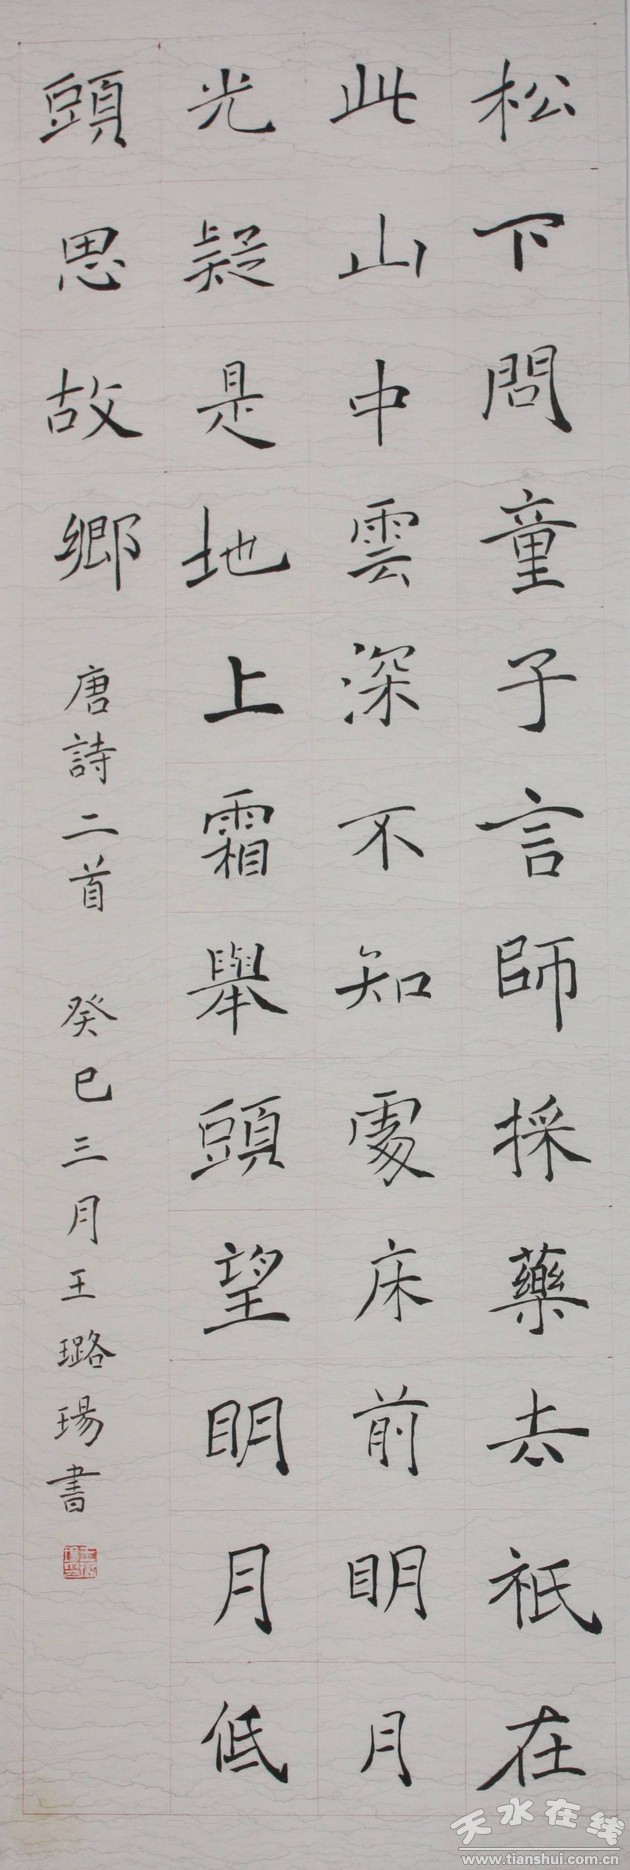 松下問童子言師採藥去祇在
此山中雲深不知處床前明月
光疑是地上霜舉頭望明月低
頭思故鄉
唐詩二首 癸巳三月王璐瑒書
天水在线
www.tianshui.com.cn